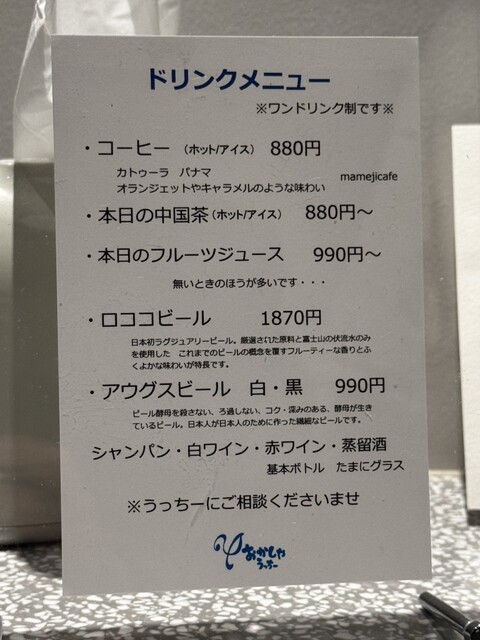 ドリンクメニュー
※ワンドリンク制です※
・コーヒー （ホット/アイス） 880円
カトゥーラ パナマ mamejicafe
オランジェットやキャラメルのような味わい
・本日の中国茶（ホット/アイス） 880円～
・本日のフルーツジュース 990円～
無いときのほうが多いです・・・
・ロココビール 1870円
日本初ラグジュアリービール。厳選された原料と富士山の伏流水のみ
を使用した これまでのビールの概念を覆すフルーティーな香りとふ
くよかな味わいが特長です。
・アウグスビール 白・黒 990円
ビール酵母を殺さない、ろ過しない、コク・深みのある、酵母が生き
ているビール。日本人が日本人のために作った繊細なビールです。
シャンパン・白ワイン・赤ワイン・蒸留酒
基本ボトル たまにグラス
※うっちーにご相談くださいませ
おかしや
うっちー